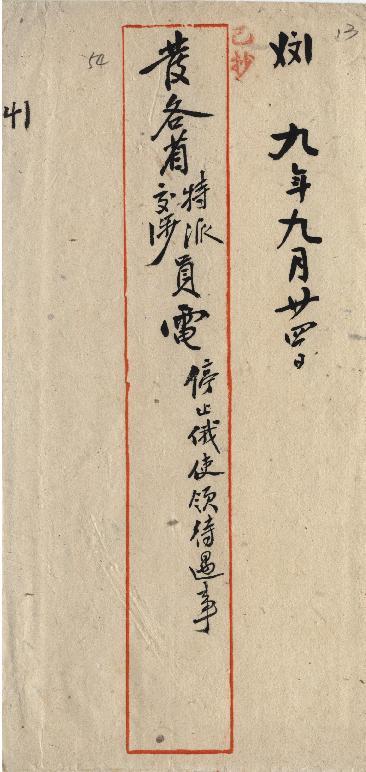 13
九年九月廿四日
已抄
發各省特派交涉員電
停止俄使領待遇事
54